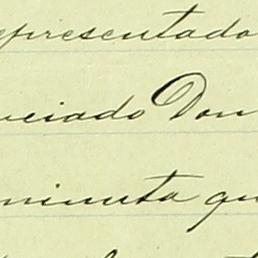 representado
nciado Don
minuta qu